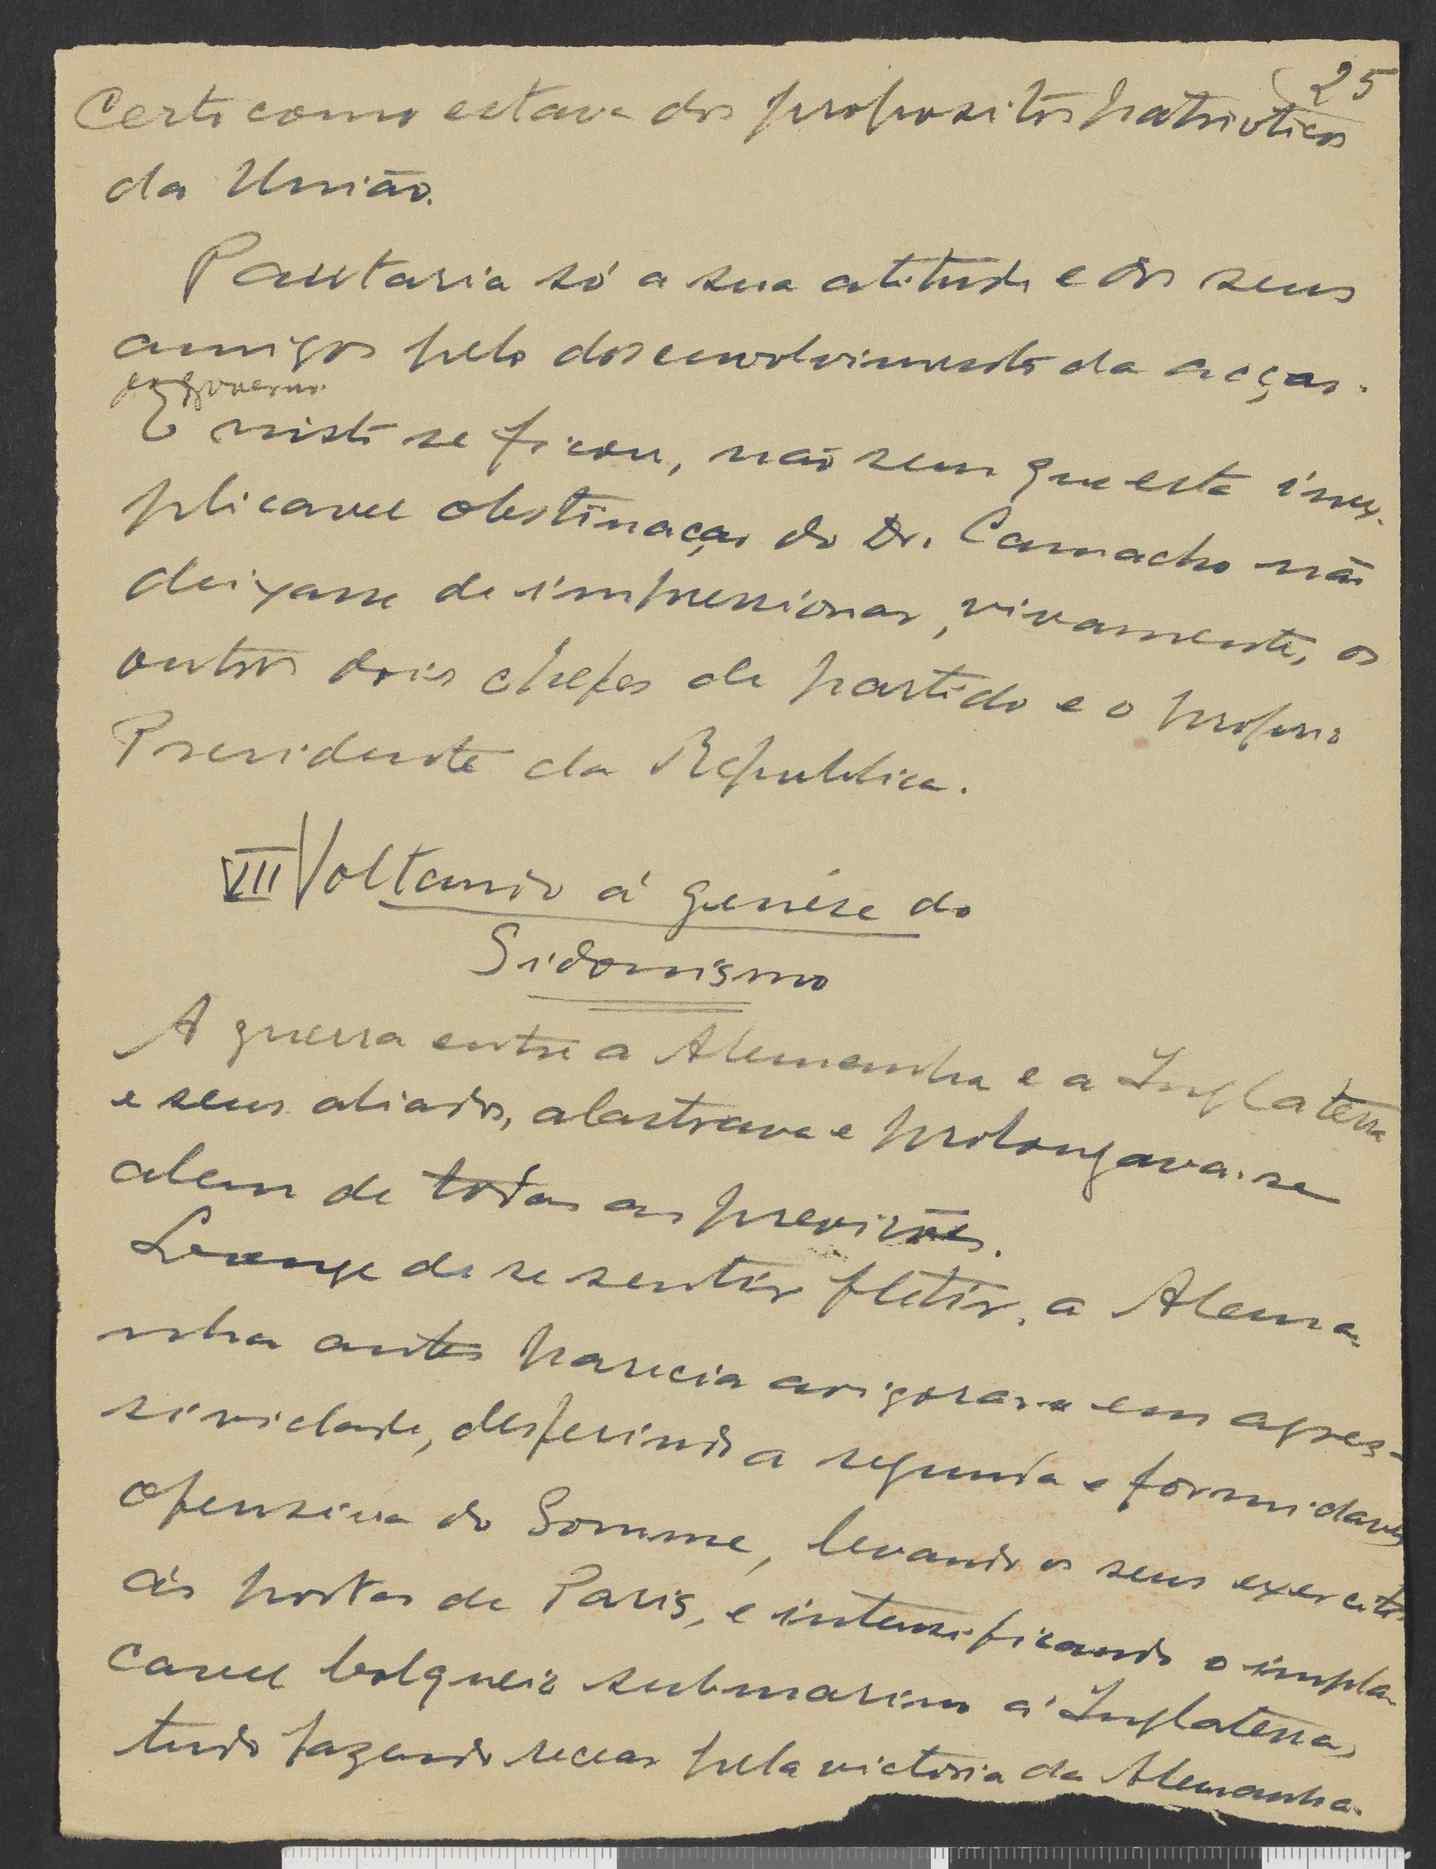 25
Certo como estava dos propositos patrioticos
da União.
Pautaria só a sua atitude e dos seus
amigos pelo desenvolvimento da acção.
governo
E nisto se ficou, não sem que esta inex-
plicavel obstinação do Dr. Camacho não
deixasse de impressionar, vivamente, os
outros dois chefes de partido e o proprio
Presidente da Republica.
VII Voltando á genése do
Sidonismo
A guerra entre a Alemanha e a Inglaterra
e seus aliados, alastrava e prolongava-se
alem de todas as previsões.
Longe de se sentir fletir, a Alema-
nha antes parecia avigorar-se em agres-
sividade, desferindo a segunda e formidavel
ofensiva do Somme, levando os seus exercitos
ás portas de Paris, e intensificando o impla-
cavel bolqueio submarino á Inglaterra,
tudo fazendo recear pela victoria da Alemanha.